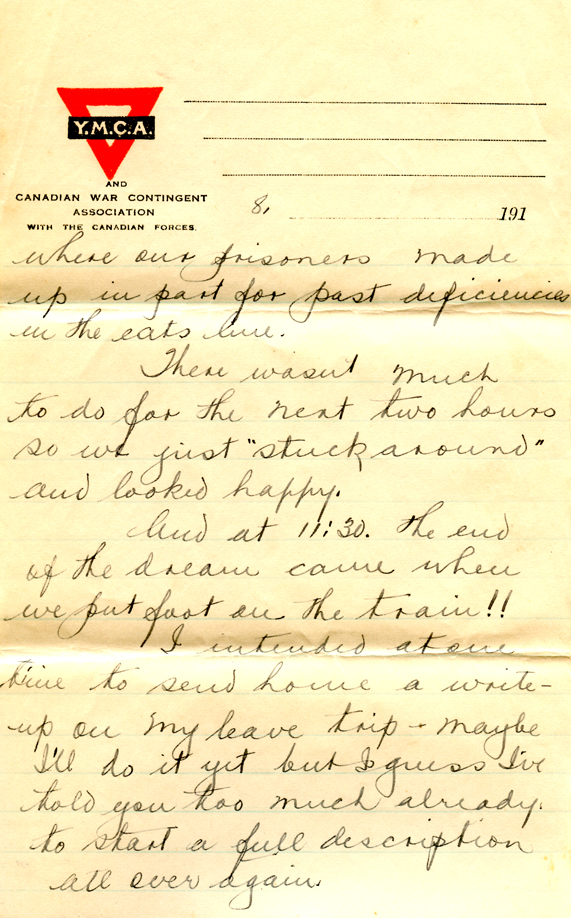 Y.M.C.A.
AND
CANADIAN WAR CONTINGENT
ASSOCIATION
WITH THE CANADIAN FORCES.
8, 191
where our prisoners made
up in part for past deficiencies
in the eats line.
There wasn't much
to do for the next two hours
so we just "stuck around"
and looked happy.
And at 11:30. the end
of the dream came when
we put foot on the train!!
I intended at one
time to send home a write-
up on my leave trip - maybe
I'll do it yet but I guess I've
told you too much already.
to start a full description
all over again.